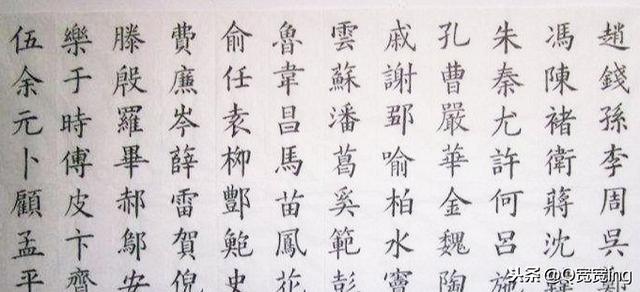 趙錢孫李周吳
馮陳褚衛蔣沈
朱秦尤許何呂施
孔曹嚴華金魏陶
戚謝鄒喻柏水竇
雲蘇潘葛奚範彭
魯韋昌馬苗鳳花
俞任袁柳酆鮑史
費廉岑薛雷賀倪
滕殷羅畢郝鄔安
樂于時傅皮卞齊
伍余元卜顧孟平
头条 @Q宽宽ing